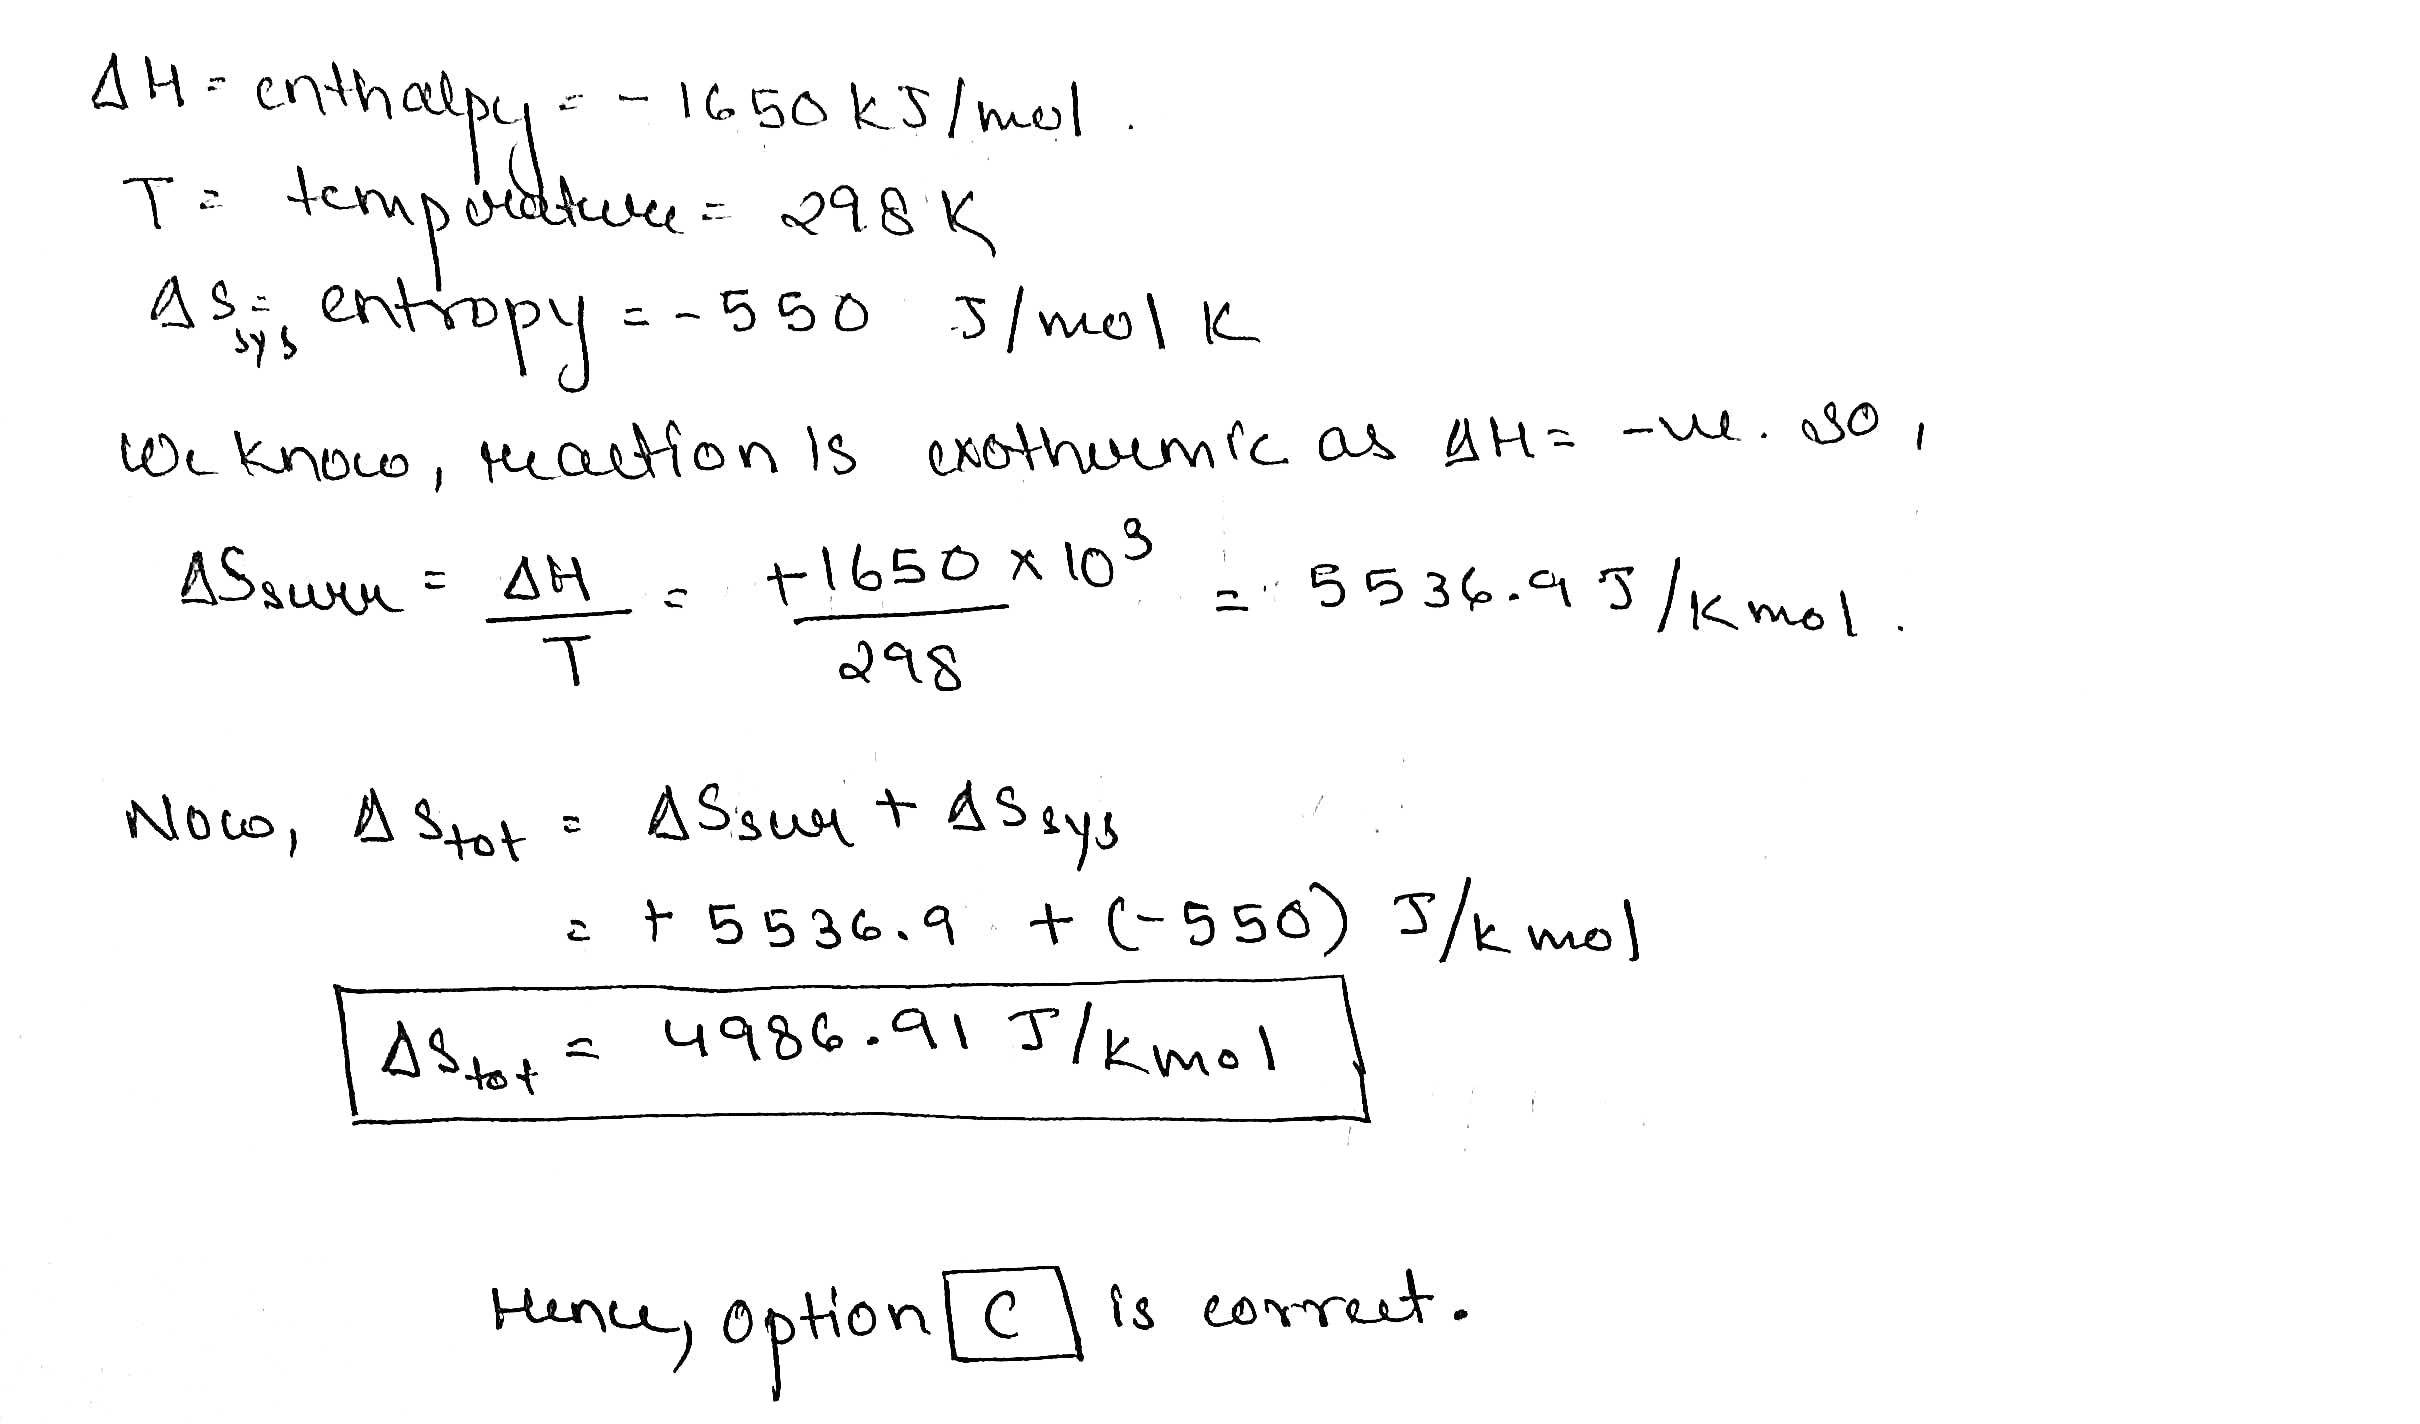 ΔH = enthalpy = - 1650 kJ/mol.
T = temperature = 298 K
ΔSsys = entropy = - 550 J/mol K
We know, reaction is exothermic as ΔH = -ve. so,
ΔSsurr = ΔH/T = +1650 x 10³/298 = 5536.9 J/K mol.
Now, ΔStot = ΔSsurr + ΔSsys
= + 5536.9 + (-550) J/K mol
ΔStot = 4986.91 J/K mol
Hence, option C is correct.